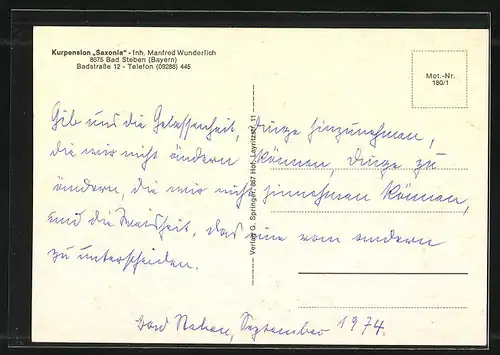 Kurpension „Saxonia" - Inh. Manfred Wunderlich
8675 Bad Steben (Bayern)
Badstraße 12 - Telefon (09288) 445
Mot.-Nr.
180/1
Gib uns die Gelassenheit, Dinge hinzunehmen,
die wir nicht ändern können, Dinge zu
ändern, die wir nicht hinnehmen können,
und die Weisheit, das eine vom andern
zu unterscheiden.
Bad Steben, September 1974.
Verlag G. Springer, 867 Hof, Layritzstr. 11